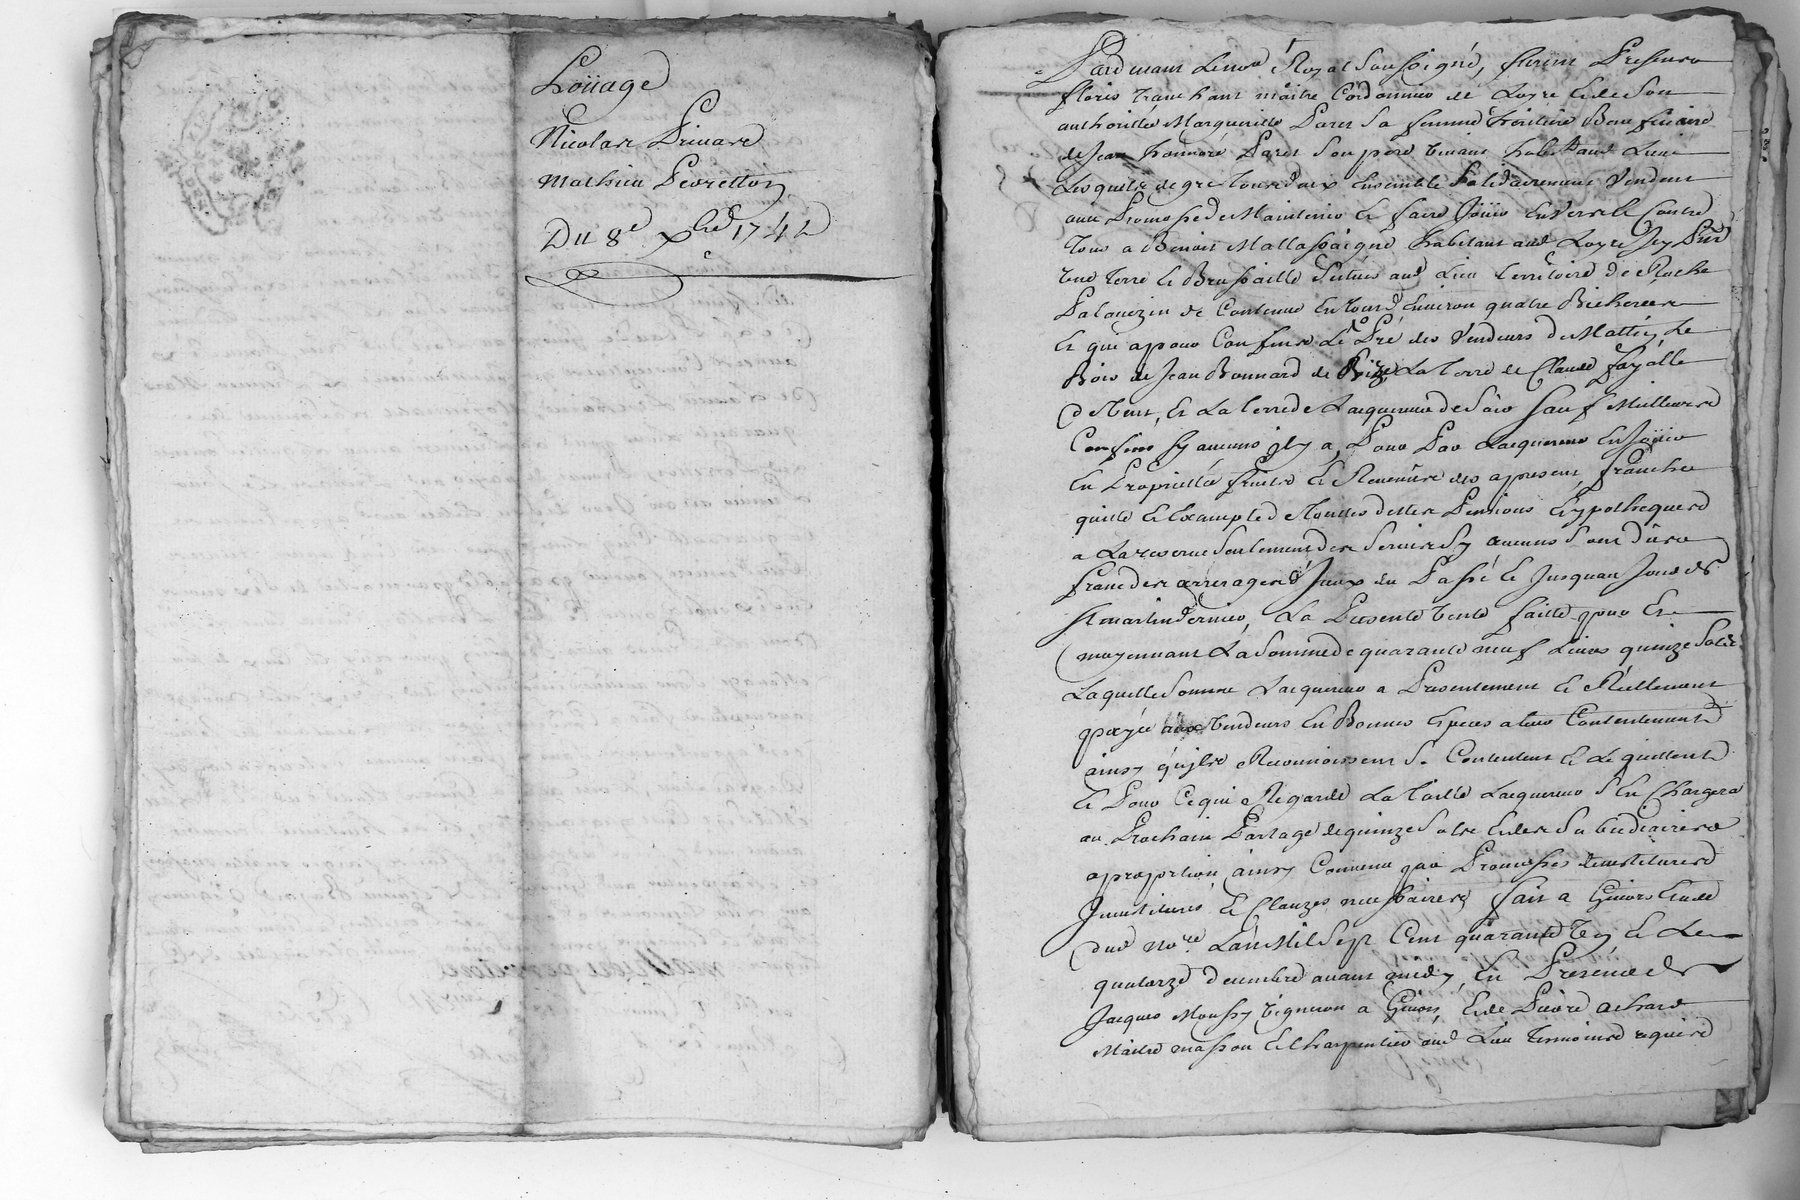 Loüage
Nicolas Primard
Mathieu Peyretton
Du 8e xbre 1742
Pardevant Le nore Royal Soussigné, furent Presents
floris tranchant maitre Cordonnier de Loyre et de Son
authorittée Margueritte Paret Sa femme heritiere Beneficiaire
de Jean honnoré Paret Son pere vivant habittant
Lesquels de gré Tous deux Ensemble Solidairement Vendent
avec Promosse de Maintenir et faire Joüir Envers et Contre
tous a Benoist Mallassaigne habitant aud Loyre Icy Pnt
une terre et Brussaille Scitués aud Lieu territoire de Roche
de Contenue En tour Environ quatre Bicherées
Et que a pour Confins Le Pré des Vendeurs de Le
Bois de Jean Bonnard de La terre de Claude fayolle
et La terre de Lacquereur de Soir Sauf Meilleures
Confins Sy aucuns jl y a, Pour Par Lacquereur En Joüir
En Proprietté fruits Et Revenus des a present, franche
quitte et Exempte de Touttes dettes Pensions Et ypotheques
a La reserve Seulement des Servis Sy aucuns Sont dües
franc des arrerages d'jceux du Passé et Jusquau Jour de
St martin dernier, La Presente vente faitte pour Et
moyennant La Somme de quarante neuf Livres quinze Sols
Laquelle Somme Lacquereur a Presentement Et Réellement
payée aux Vendeurs En Bonnes Especes a leur Contentement
ainsy quils Reconnoissent Se Contentent et Le quittent
Et Pour Ce qui Regarde La Taille Lacquereur S'en Chargera
au Prochain Partage de quinze Sols Et des Subcidiaires a
a proportion ainsy Convenu par Promesses
et Clauzes necessaires fait a Givors Etude
dud nore Lan Mil Sept Cent quarante Et Le
quatorze decembre avant midy, En Presence de
Jacques Moussy vigneron a Givors, Et de Pierre achard
Maitre masson Et Charpentier aud Lieu temoins requis